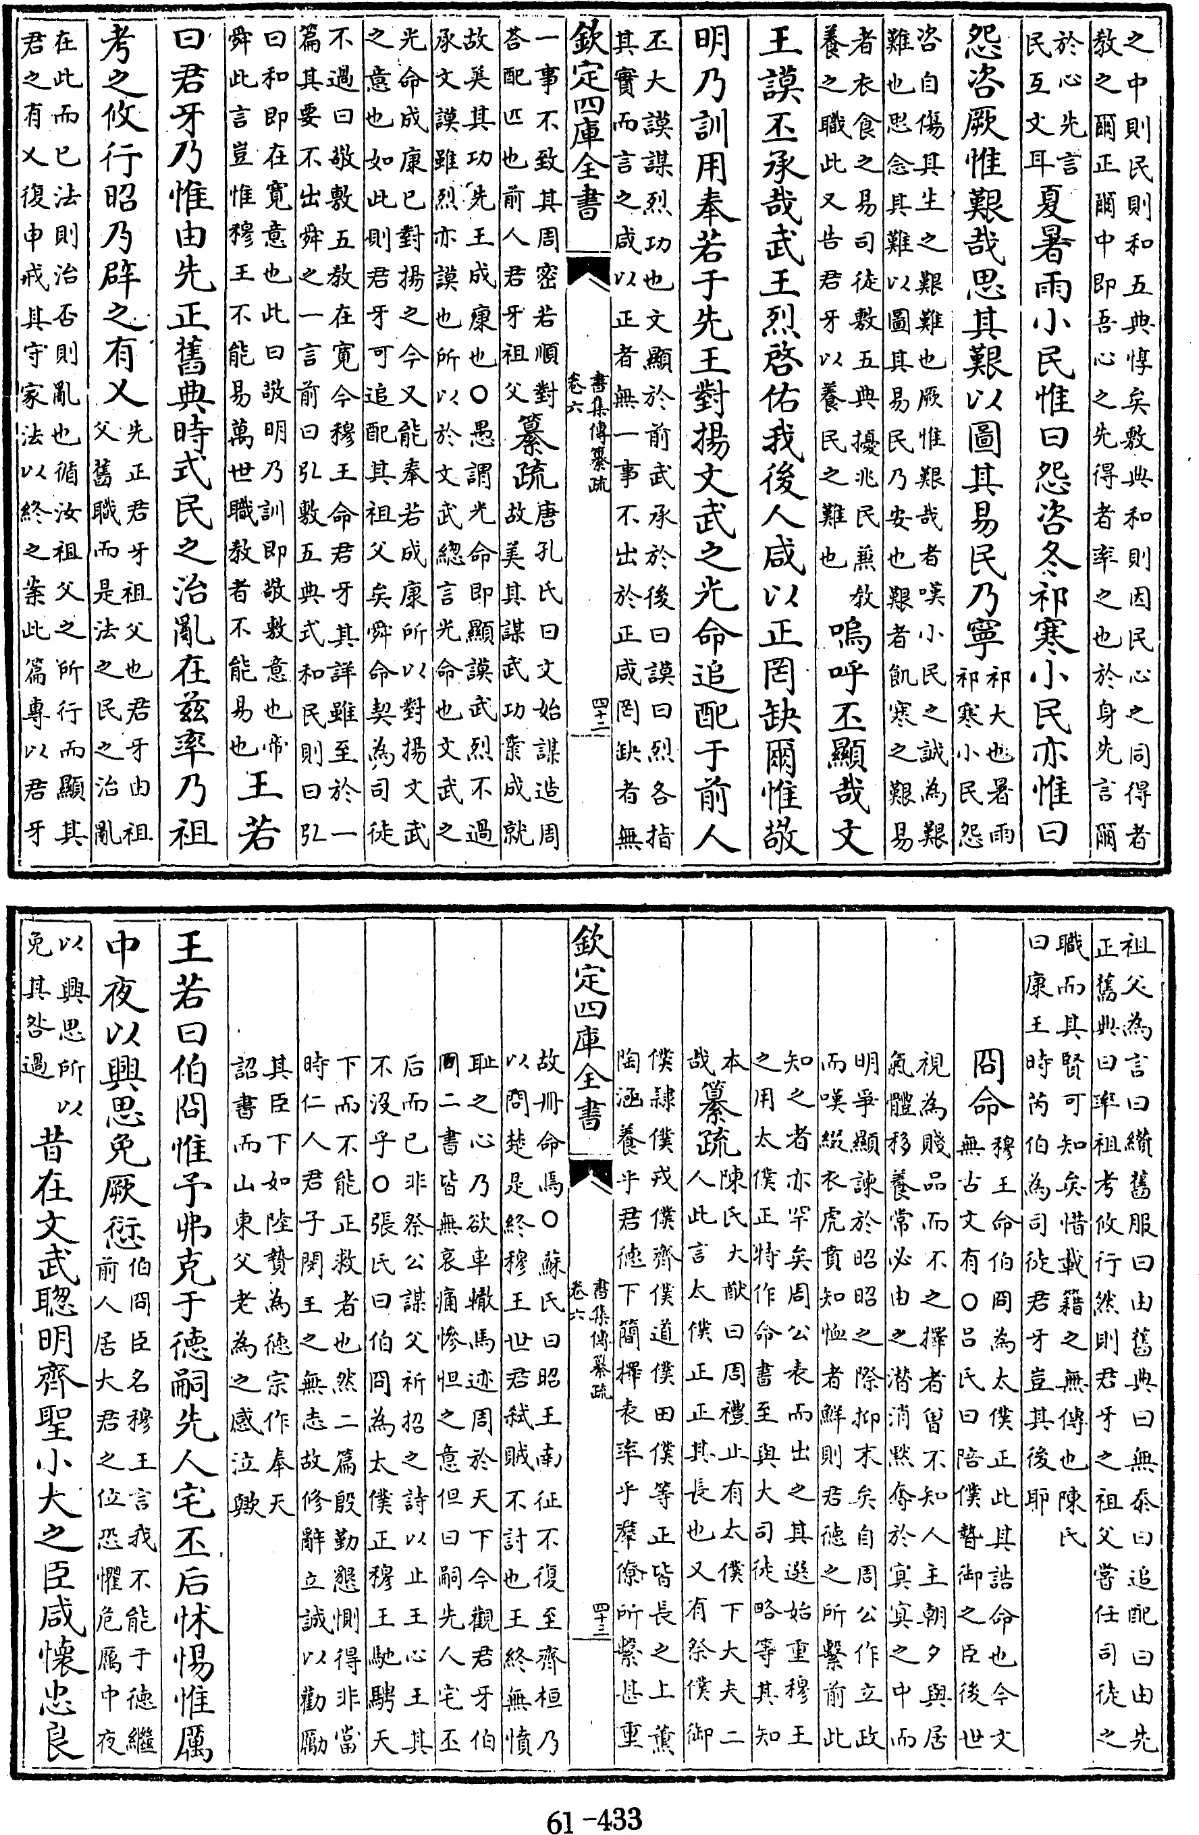 之中則民則和五典惇矣敷典和則因民心之同得者
教之爾正爾中即吾心之先得者率之也於身先言爾
於心先言民互文耳夏暑雨小民惟曰怨咨冬祁寒小民亦惟曰
怨咨厥惟艱哉思其艱以圖其易民乃寧祁大也暑雨祁寒小民怨
咨自傷其生之艱難也厥惟艱哉者嘆小民之誠為艱
難也思念其難以圖其易民乃安也艱者飢寒之艱易
者衣食之易司徒敷五典擾兆民兼教養之職此又告君牙以養民之難也嗚呼丕顯哉文
王謨丕承哉武王烈啓佑我後人咸以正罔缺爾惟敬
明乃訓用奉若于先王對揚文武之光命追配于前人
丕大謨謀烈功也文顯於前武承於後曰謨曰烈各指
其實而言之咸以正者無一事不出於正咸罔缺者無
欽定四庫全書 書集傳纂疏 卷六 四十二
一事不致其周密若順對荅配匹也前人君牙祖父纂疏唐孔氏曰文始謀造周故美其謀武功業成就
故美其功先王成康也○愚謂光命即顯謨武烈不過
承文謨雖烈亦謨也所以於文武總言光命也文武之
光命成康已對揚之今又能奉若成康所以對揚文武
之意也如此則君牙可追配其祖父矣舜命契為司徒
不過曰敬敷五教在寬今穆王命君牙其詳雖至於一
篇其要不出舜之一言前曰弘敷五典式和民則曰弘
曰和即在寛意也此曰敬明乃訓即敬敷意也帝舜此言豈惟穆王不能易萬世職教者不能易也王若
曰君牙乃惟由先正舊典時式民之治亂在兹率乃祖
考之攸行昭乃辟之有乂先正君牙祖父也君牙由祖父舊職而是法之民之治亂
在此而已法則治否則亂也循汝祖父之所行而顯其
君之有乂復申戒其守家法以終之案此篇專以君牙
祖父為言曰纘舊服曰由舊典曰無忝曰追配曰由先
正舊典曰率祖考攸行然則君牙之祖父嘗任司徒之
職而其賢可知矣惜載籍之無傳也陳氏
曰康王時芮伯為司徒君牙豈其後耶
冏命穆王命伯冏為太僕正此其誥命也今文無古文有○呂氏曰陪僕暬御之臣後世
視為賤品而不之擇者曾不知人主朝夕與居
氣體移養常必由之潛消黙奪於冥冥之中而
明爭顯諫於昭昭之際抑末矣自周公作立政
而嘆綴衣虎賁知恤者鮮則君德之所繫前此
知之者亦罕矣周公表而出之其選始重穆王
之用太僕正特作命書至與大司徒略等其知
本哉纂疏陳氏大猷曰周禮止有太僕下大夫二人此言太僕正正其長也又有祭僕御
僕隷僕戎僕齊僕道僕田僕等正皆長之上薫
陶涵養乎君德下簡擇表率乎羣僚所繫甚重
欽定四庫全書 書集傳纂疏 卷六 四十三
故冊命焉○蘇氏曰昭王南征不復至齊桓乃
以問楚是終穆王世君弒賊不討也王終無憤
耻之心乃欲車轍馬迹周於天下今觀君牙伯
冏二書皆無哀痛慘怛之意但曰嗣先人宅丕
后而已非祭公謀父祈招之詩以止王心王其
不沒乎○張氏曰伯冏為太僕正穆王馳騁天
下而不能正救者也然二篇殷勤懇惻得非當
時仁人君子閔王之無志故修辭立誠以勸勵
其臣下如陸贄為德宗作奉天
詔書而山東父老為之感泣歟
王若曰伯冏惟予弗克于德嗣先人宅丕后怵惕惟厲
中夜以興思免厥愆伯冏臣名穆王言我不能于德繼前人居大君之位恐懼危厲中夜
以興思所以免其咎過昔在文武聰明齊聖小大之臣咸懷忠良
61-433